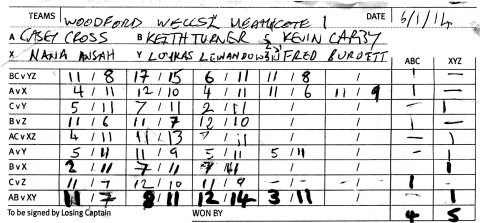 TEAMS WOODFORD WELLS 2 HEATHCOTE 1 DATE 6/1/14
A CASEY CROSS B KEITH TURNER C KEVIN CARBY
X NANA ANSAH Y LOUKAS LEWANDOWSKI Z FRED BURDETT
ABC XYZ
BC v YZ 11 / 8 17 / 15 6 / 11 11 / 8 / 1 –
A v X 4 / 11 12 / 10 4 / 11 11 / 6 11 / 9 1 –
C v Y 5 / 11 7 / 11 2 / 11 / / – 1
B v Z 11 / 6 11 / 7 12 / 10 / / 1 –
AC v XZ 4 / 11 11 / 13 7 / 11 / / – 1
A v Y 5 / 11 11 / 9 5 / 11 5 / 11 / – 1
B v X 2 / 11 7 / 11 7 / 11 / / – 1
C v Z 11 / 7 12 / 10 11 / 9 – / – – / – 1 –
AB v XY 11 / 7 8 / 11 12 / 14 3 / 11 / – 1
To be signed by Losing Captain WON BY 4 5